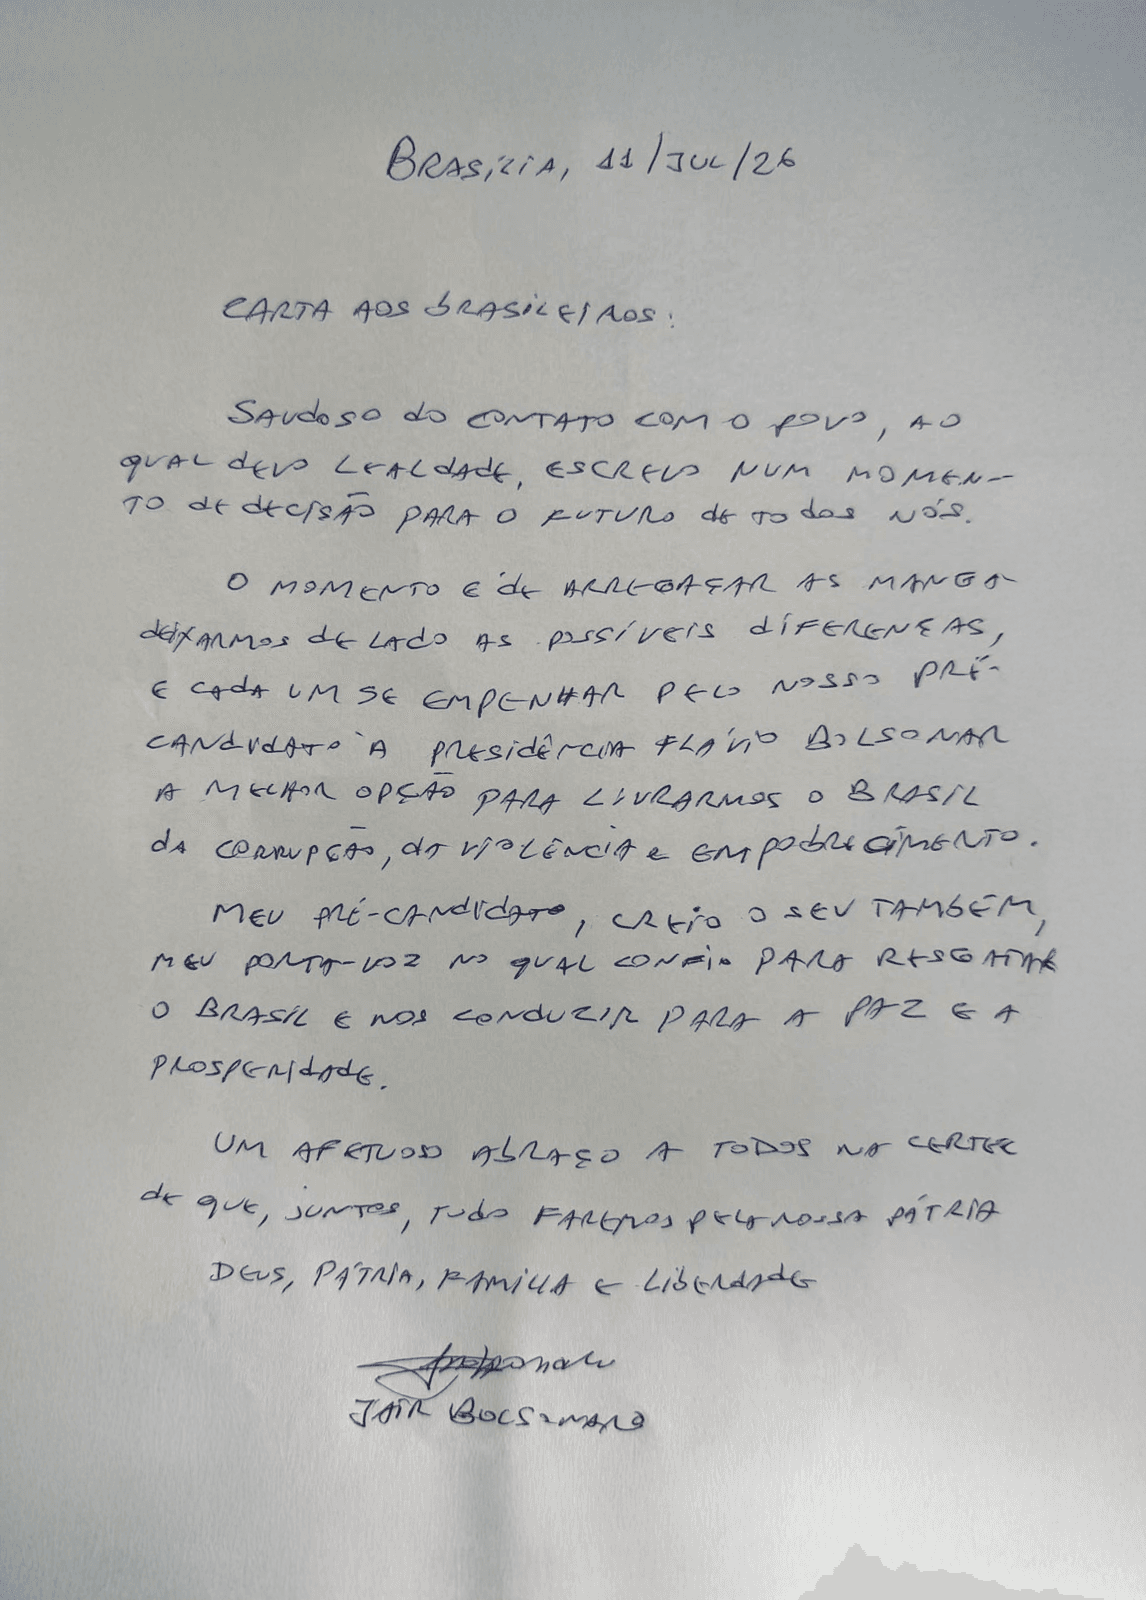 BRASÍLIA, 11/JUL/26
CARTA AOS BRASILEIROS:
SAUDOSO DO CONTATO COM O POVO, AO
QUAL DEVO LEALDADE, ESCREVO NUM MOMEN-
TO DE DECISÃO PARA O FUTURO DE TODOS NÓS.
O MOMENTO É DE ARREGAÇAR AS MANGA
DEIXARMOS DE LADO AS POSSÍVEIS DIFERENÇAS,
E CADA UM SE EMPENHAR PELO NOSSO PRÉ-
CANDIDATO À PRESIDÊNCIA FLÁVIO BOLSONAR
A MELHOR OPÇÃO PARA LIVRARMOS O BRASIL
DA CORRUPÇÃO, DA VIOLÊNCIA E EMPOBRECIMENTO.
MEU PRÉ-CANDIDATO, CREIO O SEU TAMBÉM,
MEU PORTA-VOZ NO QUAL CONFIO PARA RESGATAR
O BRASIL E NOS CONDUZIR PARA A PAZ E A
PROSPERIDADE.
UM AFETUOSO ABRAÇO A TODOS NA CERTEZ
DE QUE, JUNTOS, TUDO FAREMOS PELA NOSSA PÁTRIA
DEUS, PÁTRIA, FAMÍLIA E LIBERDADE
JAIR BOLSONARO